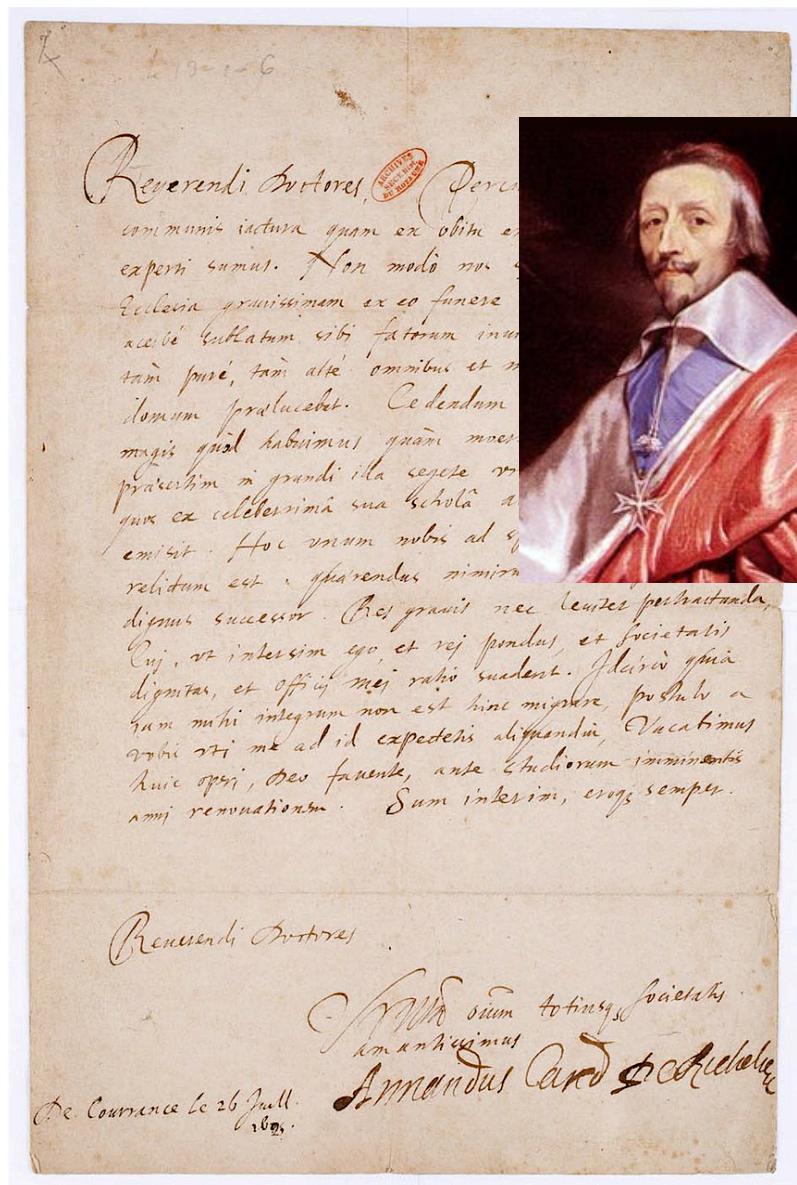 Reverendi Doctores,
ARCHIVES
DU ROYAUME
communis iactura quam ex obitu
experti sumus. Non modò nos
Ecclesia gravissimam ex eo funere
acerbé sublatum sibi fatorum
tam puré, tam alté omnibus et
domum prælucebat. Cedendum
magis quòd habuimus quàm
præsertim in grandi illa segete
quos ex celeberrimâ sua scholâ
emisit. Hoc vnum nobis ad
relictum est, quærendus
dignus successor. Res gravis nec leuiter pertractanda,
Cuj, vt intersim ego, et rej pondus, et Societatis
dignitas, et officij mej ratio suadent. Idcircò quia
iam mihi integrum non est hinc migrare, postulo a
vobis vti me ad id expectetis aliquandiu, Vacabimus
huic operi, Deo fauente, ante studiorum imminentis
annj renouationem. Sum interim, eroq; semper.
Reuerendi Doctores
totiusq; Societatis
amantissimus
Armandus Card De Richelieu
De Courrance le 26 Juill.